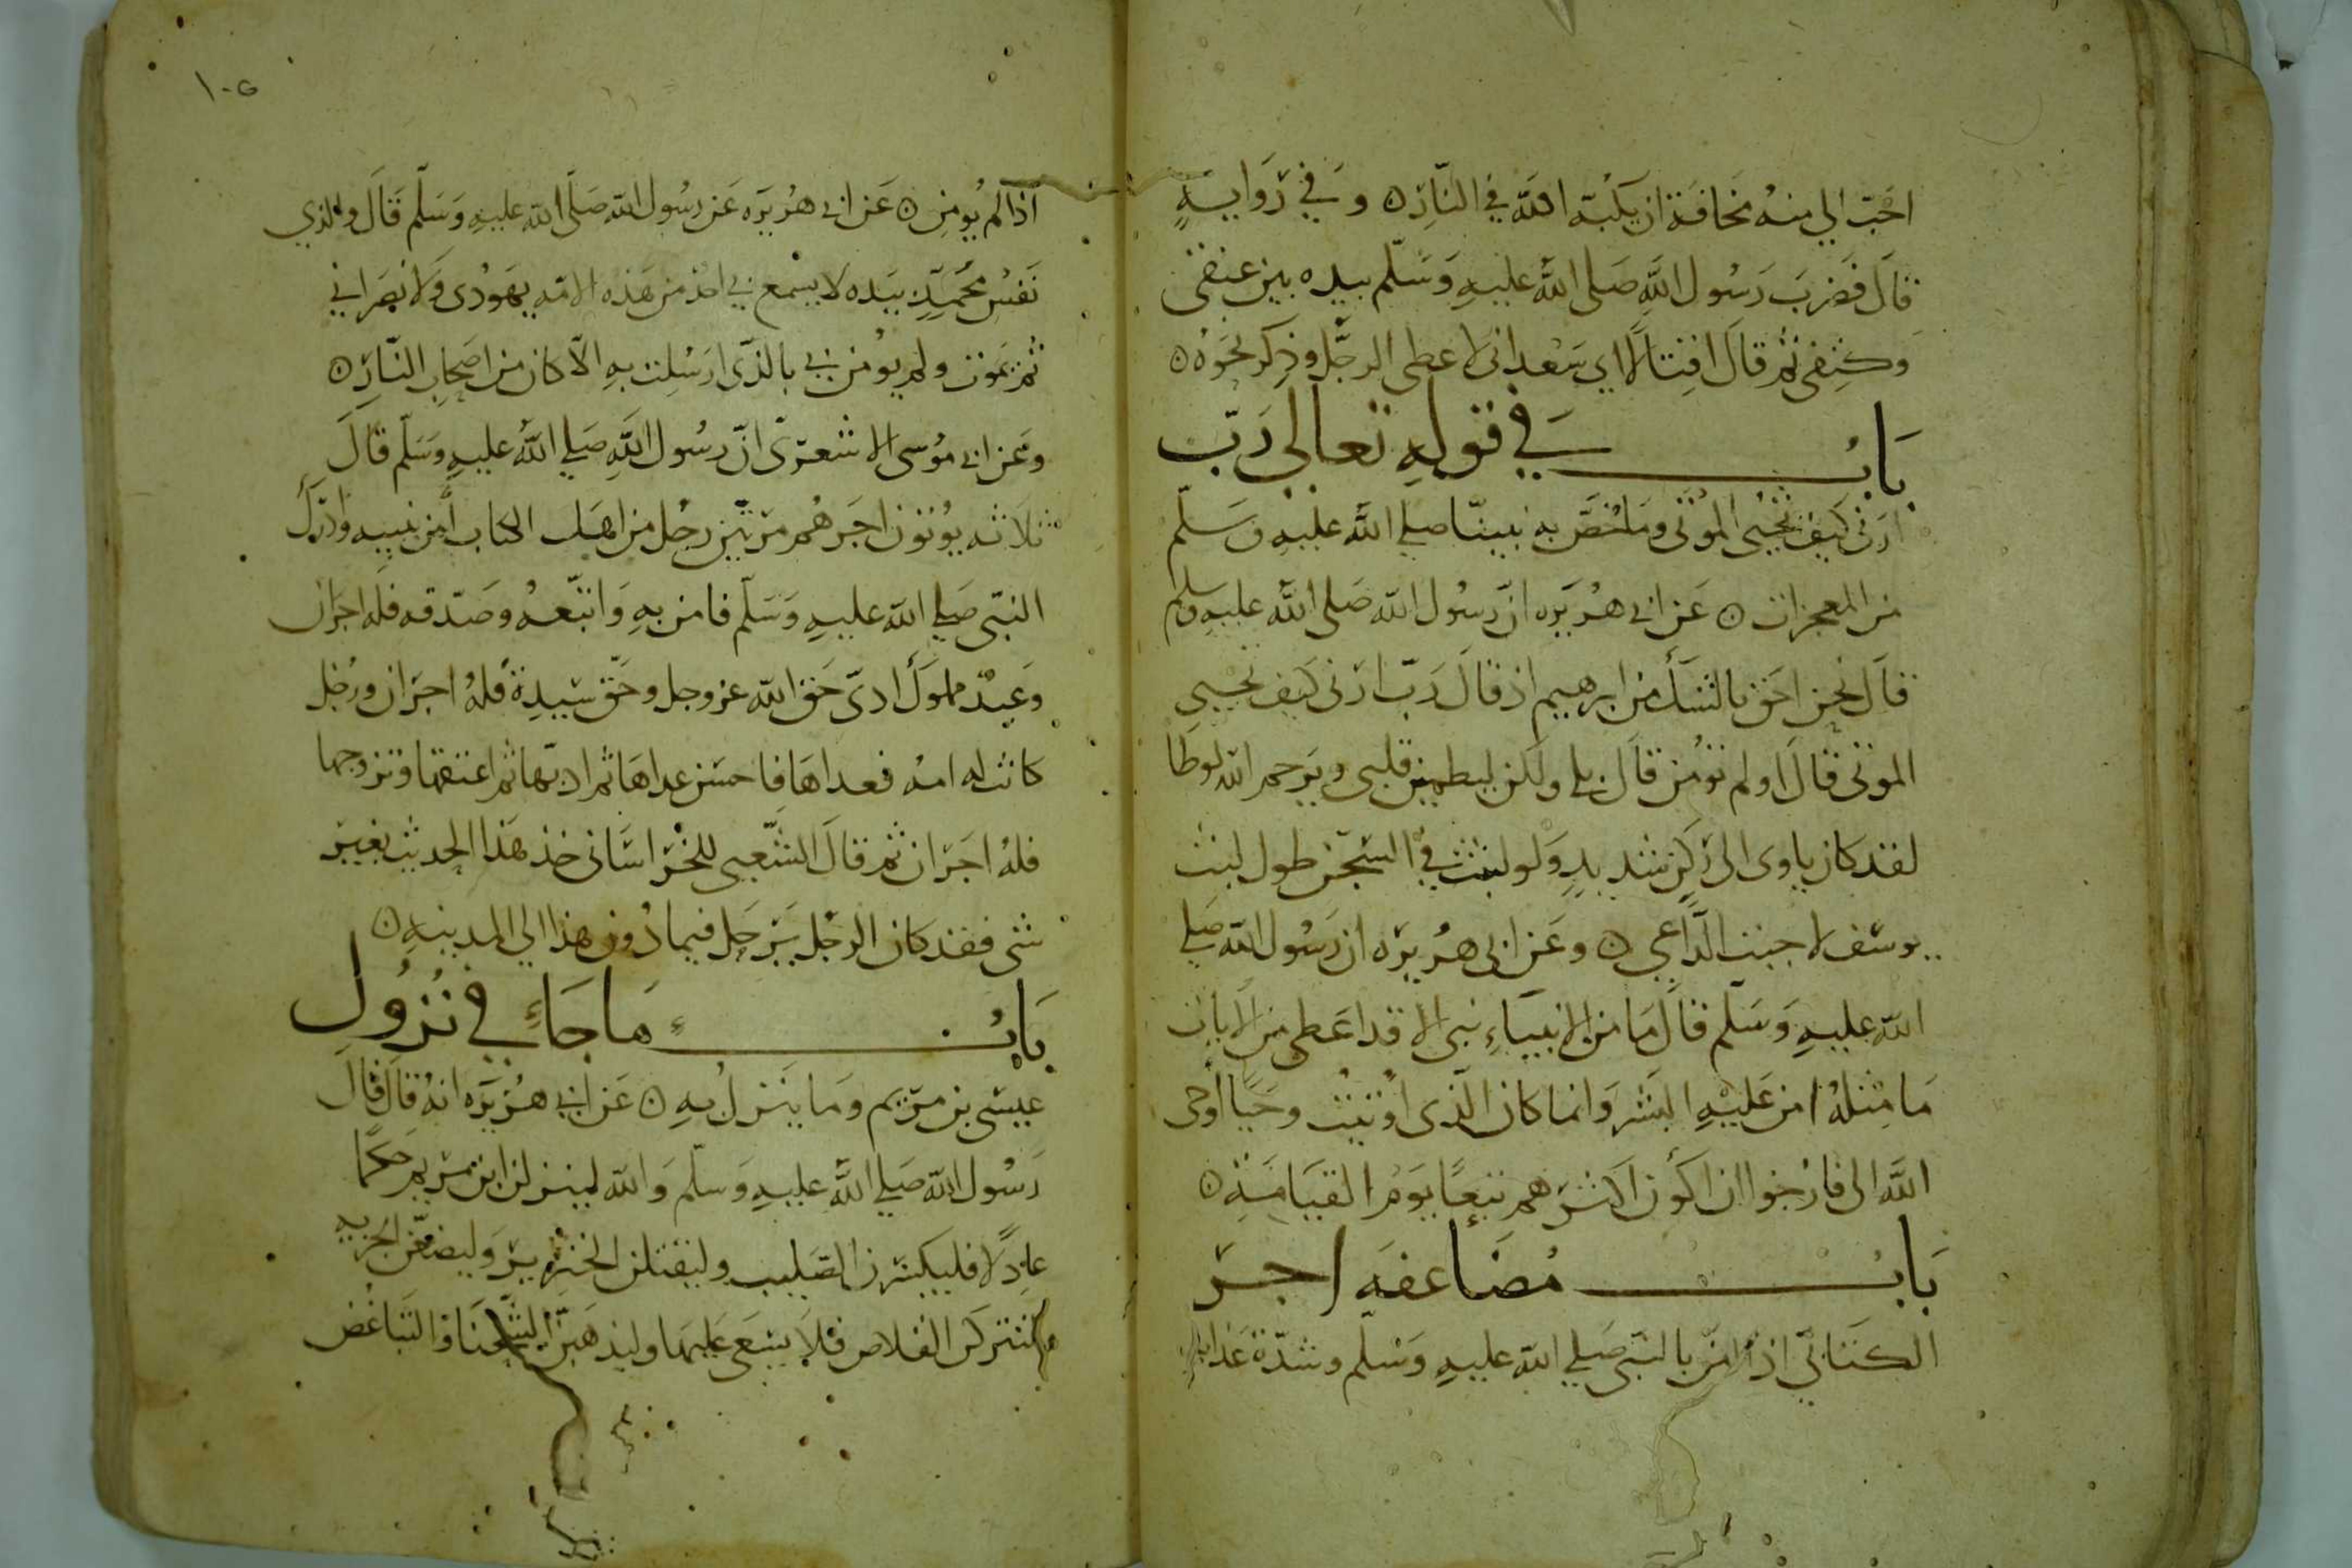 احب الي منه مخافة ان يكبه الله في النار ه وفي رواية
قال فضرب رسول الله صلى الله عليه وسلم بيده بين عنقي
وكتفي ثم قال اقتالا اي سعد اني لاعطي الرجل وذكر نحوه ه
باب في قوله تعالى رب
ارني كيف تحيي الموتى وما خص به نبينا صلي الله عليه وسلم
من المعجزات ه عن ابي هريره ان رسول الله صلى الله عليه وسلم
قال نحن احق بالشك من ابرهيم اذ قال رب ارني كيف تحيي
الموتى قال اولم تؤمن قال بلى ولكن ليطمين قلبي ويرحم الله لوطا
لقد كان ياوى الى ركن شديد ولو لبثت في السجن طول لبث
يوسف لاجبت الداعي ه وعن ابي هريره ان رسول الله صلي
الله عليه وسلم قال ما من الانبياء نبي الا قد اعطي من الايات
ما مثله امن عليه البشر وانما كان الذي اوتيت وحيا اوحى
الله الى فارجوا ان اكون اكثرهم تبعا يوم القيامة ه
باب مضاعفه اجر
الكتابي اذا امن بالنبي صلي الله عليه وسلم وشدة عذابه
١٠٥
اذا لم يومن ه عن ابي هريره عن رسول الله صلى الله عليه وسلم قال والذي
نفس محمد بيده لا يسمع بي احد من هذه الامه يهودى ولا نصراني
ثم يموت ولم يومن بي بالذي ارسلت به الا كان من اصحاب النار ه
وعن ابي موسى الاشعرى ان رسول الله صلي الله عليه وسلم قال
ثلاثه يوتون اجرهم مرتين رجل من اهل الكتاب امن بنبيه وادرك
النبي صلي الله عليه وسلم فامن به واتبعه وصدقه فله اجران
وعبد مملوك ادى حق الله عز وجل وحق سيده فله اجران ورجل
كانت له امه فغداها فاحسن غداها ثم ادبها ثم اعتقها وتزوجها
فله اجران ثم قال الشعبي للخراساني خذ هذا الحديث بغير
شي فقد كان الرجل يرحل فيما دون هذا الي المدينه ه
باب ما جاء في نزول
عيسى بن مريم وما ينزل به ه عن ابي هريره انه قال قال
رسول الله صلي الله عليه وسلم والله لينزلن ابن مريم حكما
عادلا فليكسرن الصليب وليقتلن الخنزير وليضعن الجزيه
ولتتركن القلاص فلا يسعى عليها وليذهبن الشحنا والتباغض